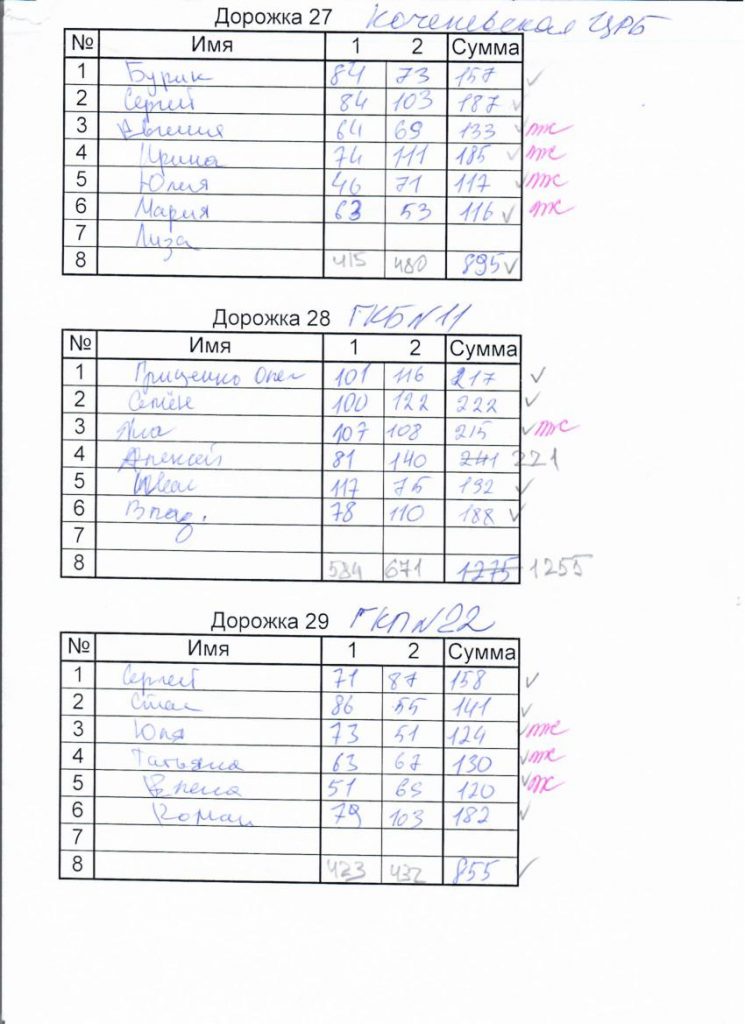 Дорожка 27 Коченевская ЦРБ
№ Имя 1 2 Сумма
1 Бурик 84 73 157 ✓
2 Сергей 84 103 187 ✓
3 Евгения 64 69 133 ✓ ж
4 Ирина 74 111 185 ✓ ж
5 Юлия 46 71 117 ✓ ж
6 Мария 63 53 116 ✓ ж
7 Лиза
8 415 480 895 ✓
Дорожка 28 ГКБ №11
№ Имя 1 2 Сумма
1 Гриценко Олег 101 116 217 ✓
2 Семён 100 122 222 ✓
3 Яна 107 108 215 ✓ ж
4 Алексей 81 140 241 221
5 Иван 117 75 192 ✓
6 Влад. 78 110 188 ✓
7
8 584 671 1275 1255
Дорожка 29 ГКП №22
№ Имя 1 2 Сумма
1 Сергей 71 87 158 ✓
2 Стас 86 55 141 ✓
3 Юля 73 51 124 ✓ ж
4 Татьяна 63 67 130 ✓ ж
5 Елена 51 69 120 ✓ ж
6 Роман 79 103 182 ✓
7
8 423 432 855 ✓